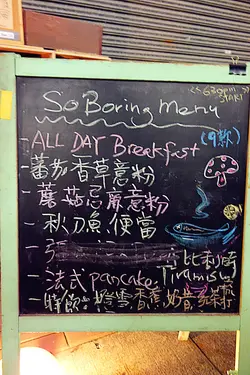 6:30pm
START
So Boring Menu
- ALL DAY Breakfast (9款)
- 蕃茄香草意粉
- 蘑菇忌廉意粉
- 秋刀魚便當
比利時
- 法式pancake Tiramisu
- 特飲: 香蕉奶昔